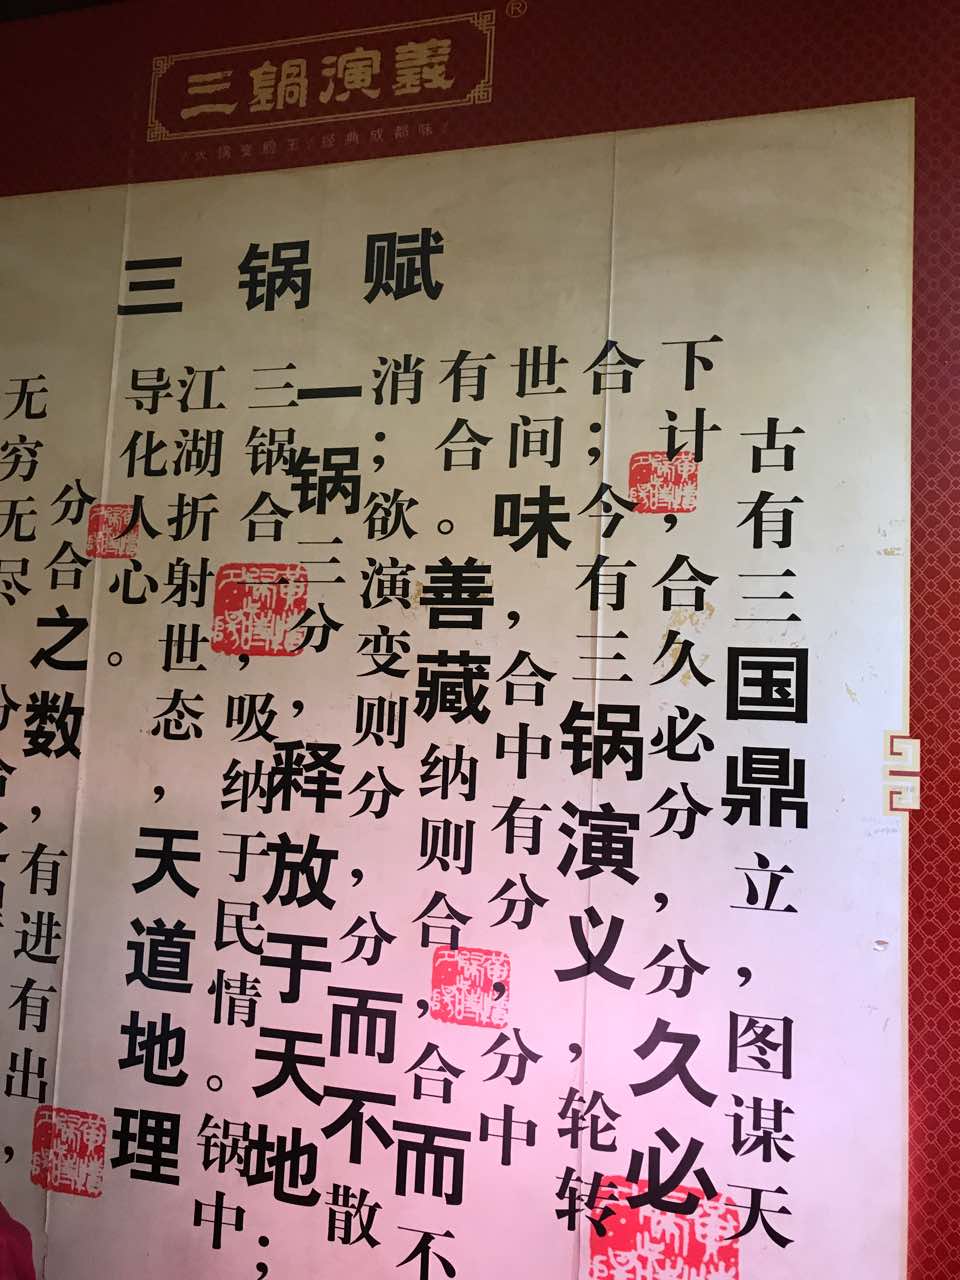 三鍋演義®
/火锅变脸王/经典成都味/
三锅赋
古有三国鼎立，图谋天
下计，合久必分，分久必
合；今有三锅演义，轮转
世间味，合中有分，分中
有合。善藏纳则合，合而不
消；欲演变则分，分而不散
一锅三分，释放于天地；
三锅合一，吸纳于民情。锅中
江湖折射世态，天道地理
导化人心。
分合之数，有进有出，
无穷无尽